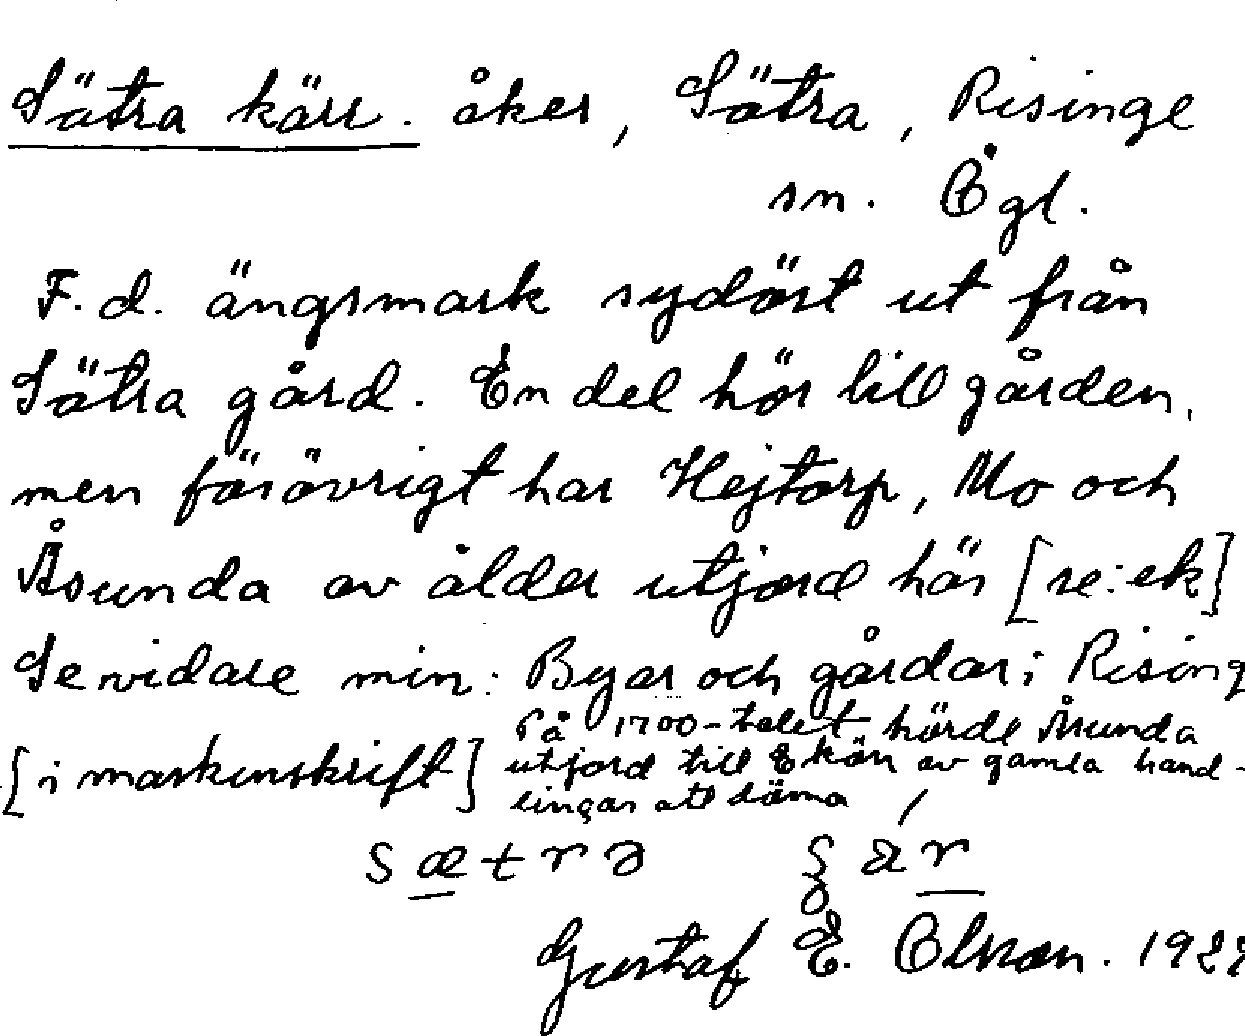 Sätra kärr. åker, Sätra, Risinge
sn. Ögl.
F.d. ängsmark sydöst ut från
Sätra gård. En del hör till gården,
men förövrigt har Hejtorp, Mo och
Åsunda av ålder utjord här [se: ek]
Se vidare min: Byar och gårdar i Rising
[i maskinskrift]
På 1700-talet hörde Åsunda
utjord till Ekön av gamla hand-
lingar att döma
Gustaf E. Olsson. 192